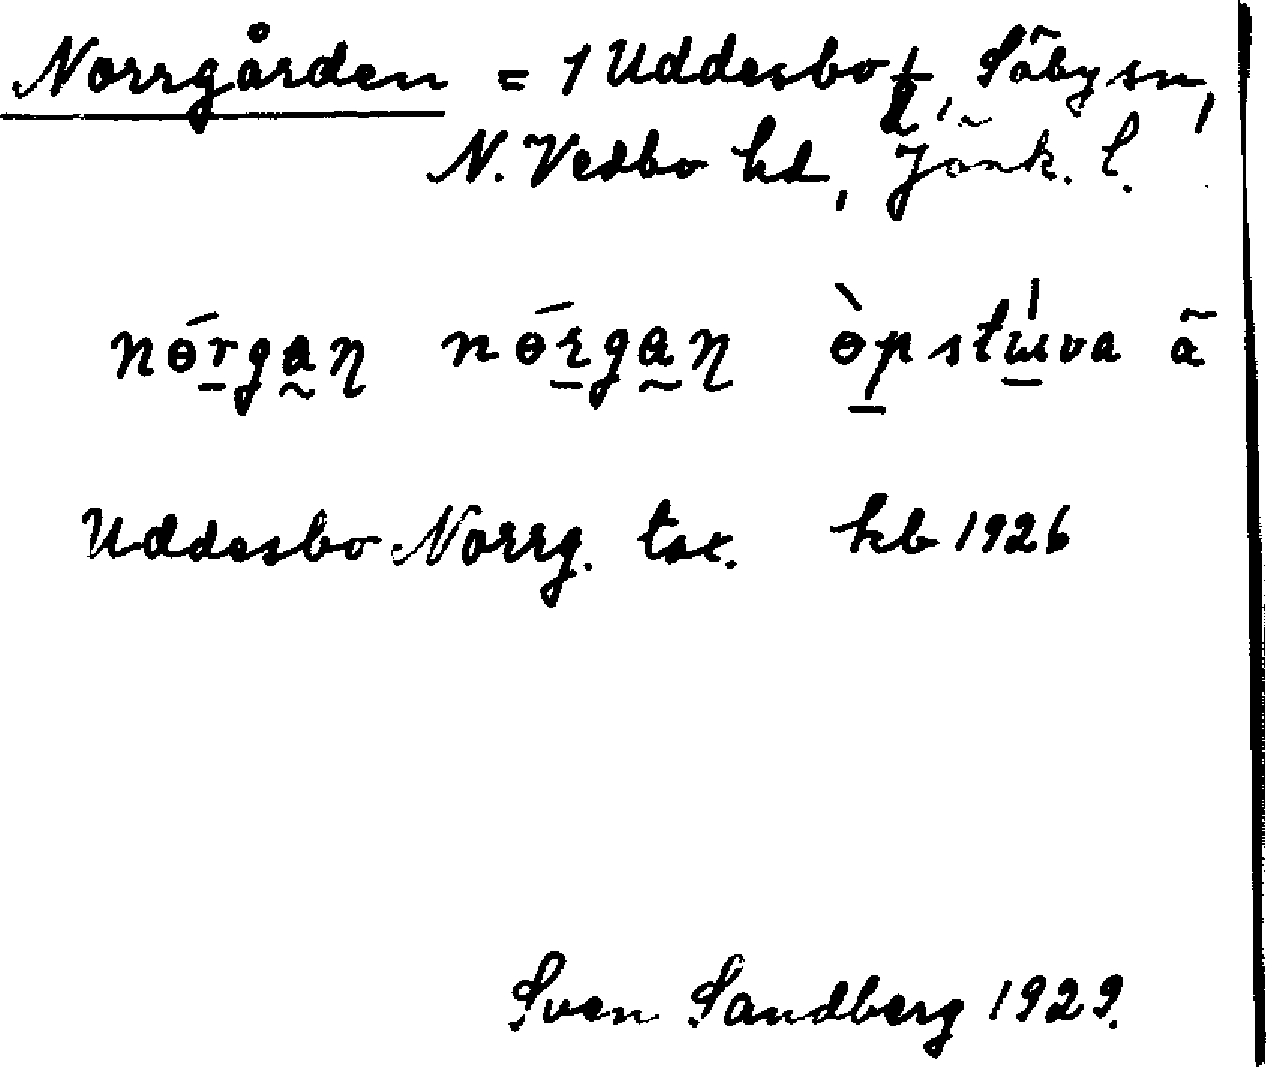 Norrgården = 1 Uddesbo ½, Säby sn,
N. Vedbo hd, Jönk. l.
nɵ́rgan̰ nɵ́rgan̰ ɵ̀pstɯva ã
Uddesbo Norrg. hb 1926
Sven Sandberg 1929.